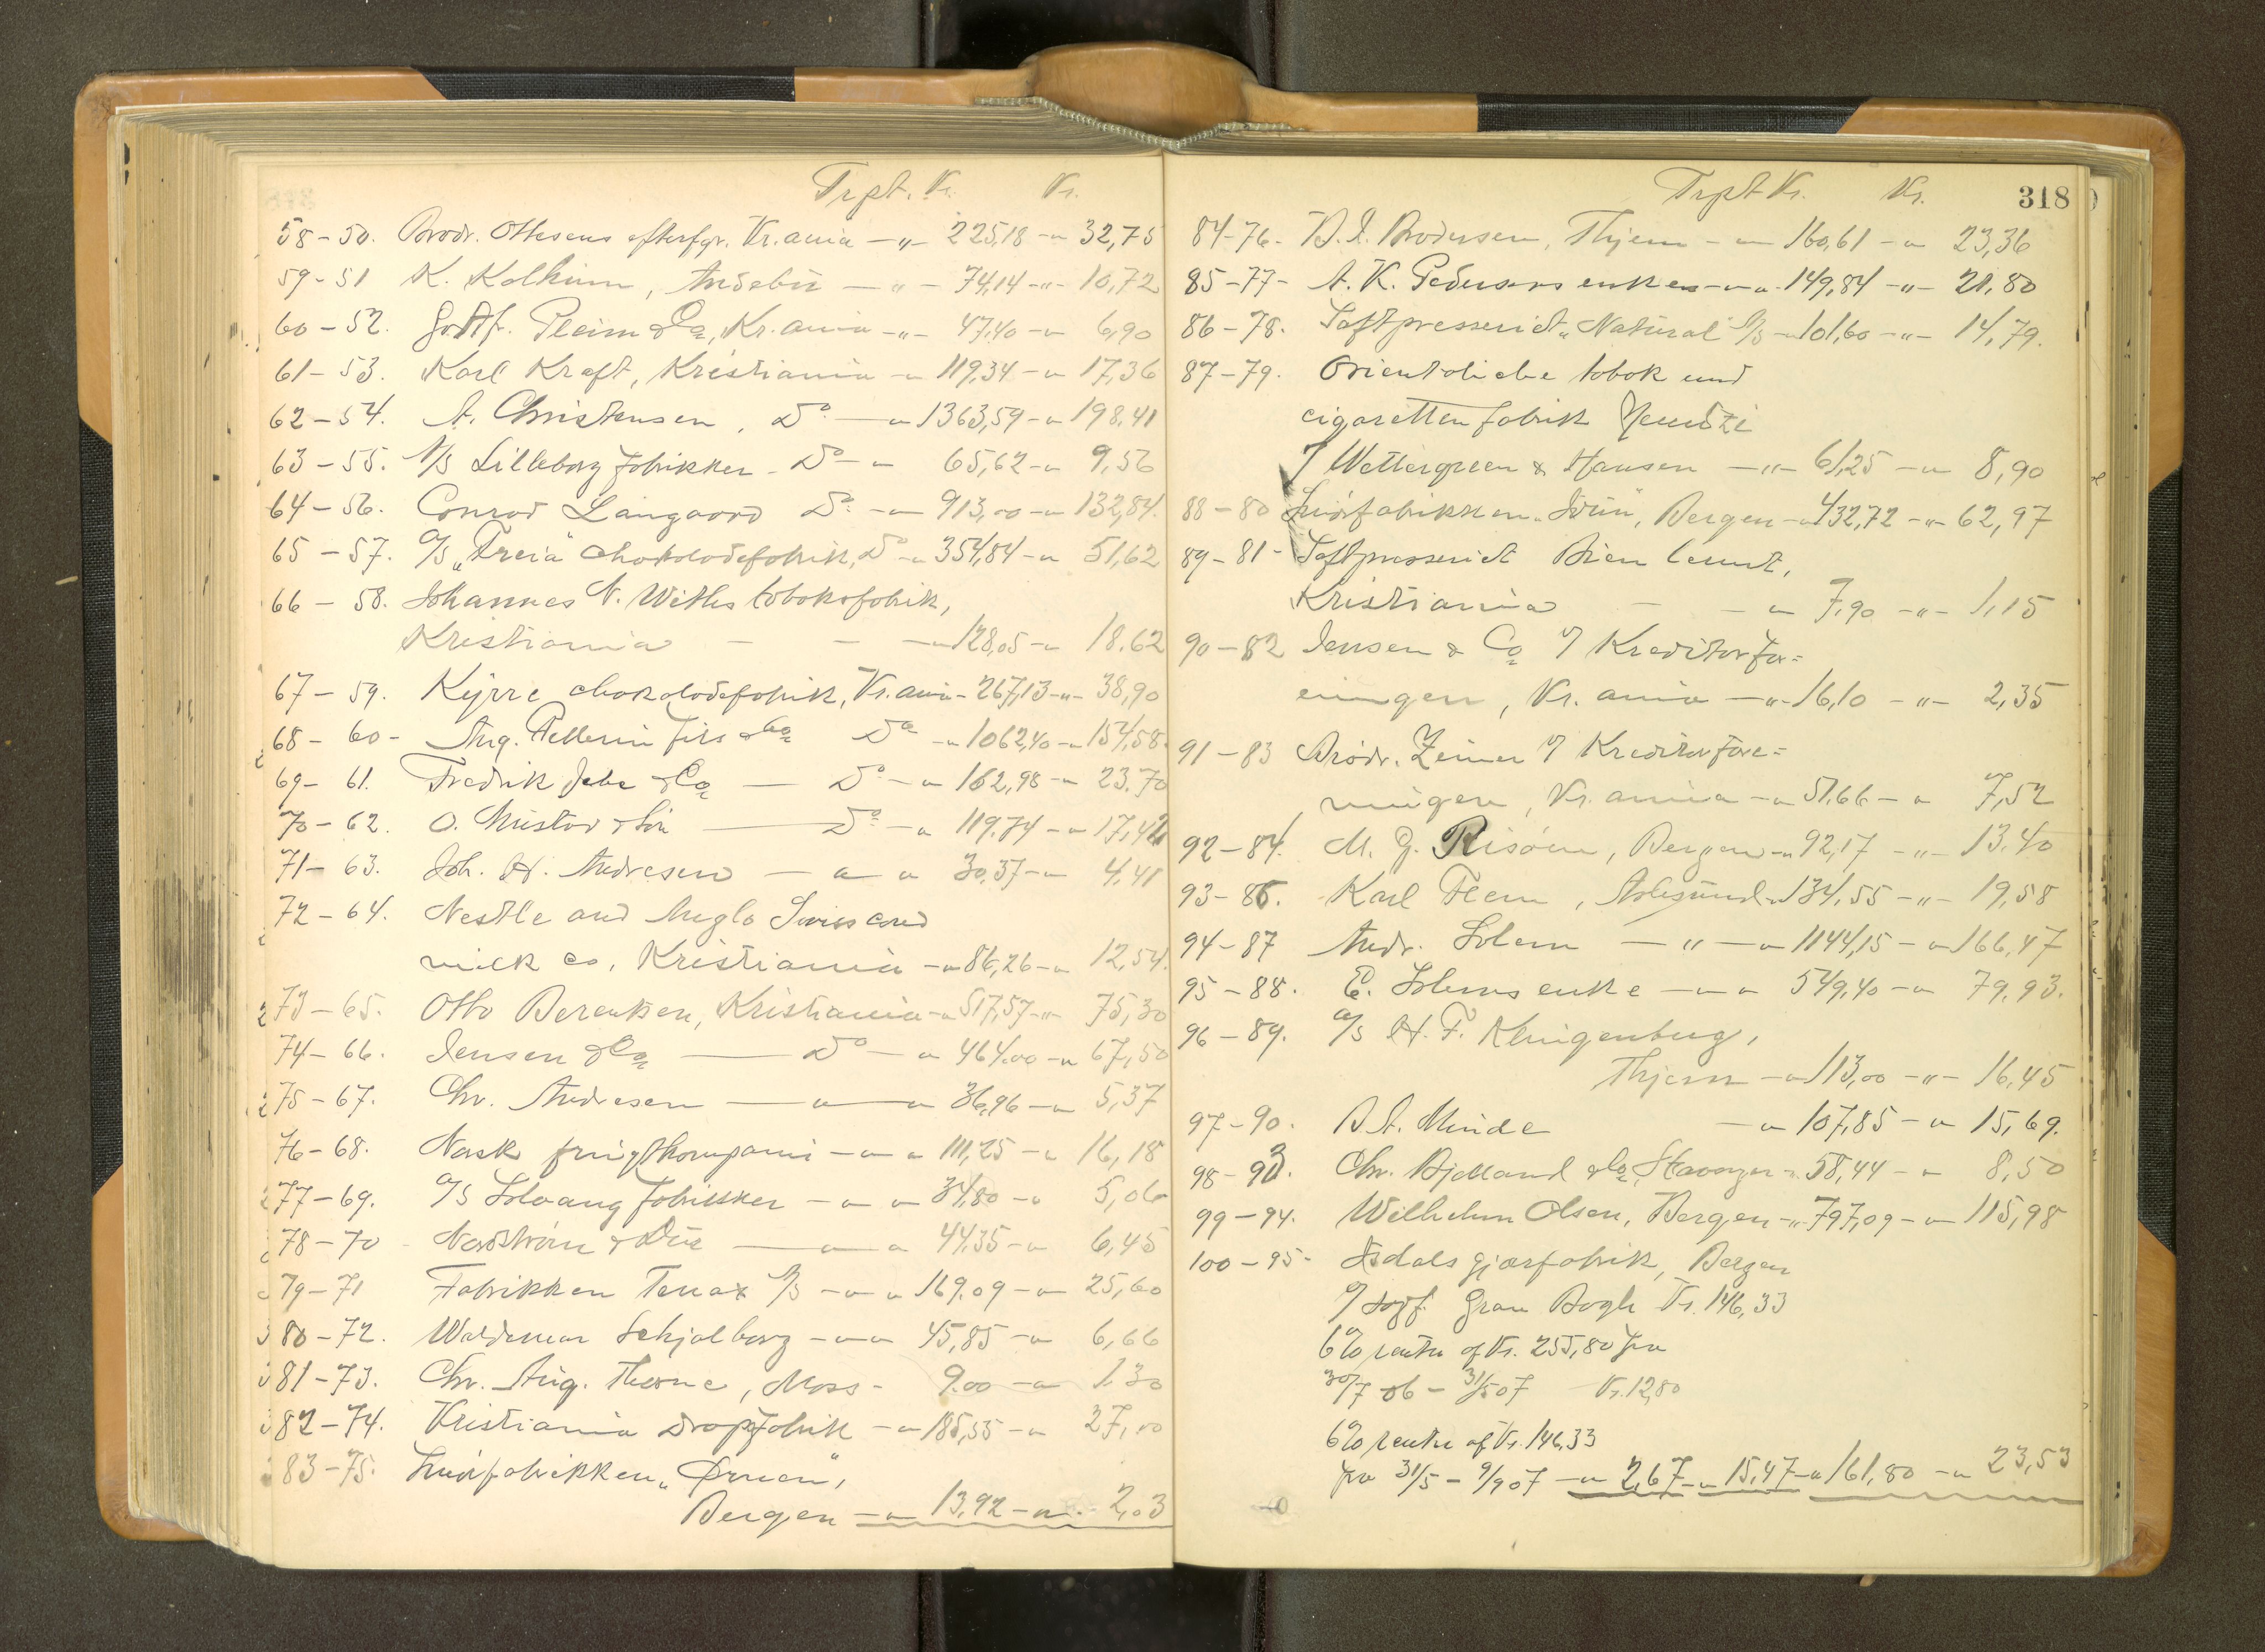 Trpt. Kr. Kr.
58-50. Brødr. Ottesens efterfgr. Kr.ania -„- 225,18 -„- 32,75
59-51 K. Kolkinn, Andebu -„- 74,14 -„- 10,72
60-52. Gottf. & Co, Kr.ania -„- 47,40 -„- 6,90
61-53. Karl Kraft, Kristiania -„- 119,34 -„- 17,36
62-54. A. Christensen, Do -„- 1363,59 -„- 198,41
63-55. A/S Lilleborg fabrikker - Do -„- 65,62 -„- 9,56
64-56. Conrad Langaard Do -„- 913,00 -„- 132,84.
65-57. A/S „Freia" chokoladefabrik, Do -„- 354,84 -„- 51,62
66-58. Johannes N. Withs tobaksfabrik,
Kristiania - - -„- 128,05 -„- 18.62
67-59. Kyrre chokoladefabrik, Kr.ania - 267,13 -„- 38,90
68-60- Aug. Pellerin fils & Co Do -„- 1062,40 -„- 154,58.
69-61. Fredrik Jebe & Co — Do -„- 162,98 -„- 23.70
70-62. O. Mustad & Søn — Do -„- 119.74 -„- 17,42
71-63. Joh. H. Andresen -„- „ 30,37 -„- 4,41
72-64. Nestle and Anglo Swiss cond
milk co, Kristiania -„- 86,26 -„- 12,54.
73-65. Otto Berentsen, Kristiania -„- 517,57 -„- 75,30
74-66. Jensen & Co — Do -„- 464.00 -„- 67,50
75-67. Chr. Andresen -„-„- 36,96 -„- 5,37
76-68. Norsk frugtkompani -„-„- 111,25 -„- 16,18
77-69. A/S Solvang fabrikker -„-„- 34,80 -„- 5,06
78-70 - Nordstrøm & Due -„- „ 44,35 -„- 6,45
79-71 Fabrikken Tenax A/S -„-„ 169.09 -„- 25,60
80-72. Waldemar Schjølberg -„-„- 45,85 -„- 6,66
81-73. Chr. Aug. Thorne, Moss - 9.00 -„- 1.30
82-74. Kristiania Dropsfabrik -„- 185,55 -„- 27,00
83-75. Smørfabrikken „Ørnen",
Bergen -„- 13,92 -„- 2,03
Trpt Kr. Kr. 318
84-76- B. I. Brodersen, Thjem -„- 160,61 -„- 23,36
85-77- A. K. Pedersens enke -„-„- 149,84 -„- 21,80
86-78. Saftpresseriet „Natural" A/S -„- 101,60 -„- 14,79.
87-79. Orientalische tabak und
cigaretten fabrik
v/ Wettergreen & Hansen -„- 61,25 -„- 8,90
88-80 Smørfabrikken „Idun", Bergen -„- 432,72 -„- 62,97
89-81- Saftpresseriet Bien
Kristiania - -„- 7,90 -„- 1,15
90-82 Jensen & Co v/ Kreditorfor=
eningen, Kr.ania -„- 16,10 -„- 2,35
91-83 Brødr. Zeiner v/ Kreditorfore=
ningen, Kr.ania -„- 51,66 -„- 7,52
92-84. M. G. Risøen, Bergen -„- 92,17 -„- 13.40
93-86. Karl Flem, Aalesund -„- 134,55 -„- 19,58
94-87 Andr. Solem -„-„- 1144,15 -„- 166,47
95-88. E. Solems enke -„-„ 549,40 -„- 79,93.
96-89. A/S H. F. Klingenberg,
Thjem -„- 113,00 -„- 16,45
97-90. B. A. Minde -„- 107,85 -„- 15,69.
98-93. Chr. Bjelland & Co, Stavanger -„- 58,44 -„- 8,50
99-94. Wilhelm Olsen, Bergen -„- 797,09 -„- 115,98
100-95- Isdals gjærfabrik, Bergen
v/ sagf. Gran Bøgh Kr. 146,33
6% rente af Kr. 255,80 fra
30/7 06 - 31/5 07 Kr. 12,80
6% rente af Kr. 146,33
fra 31/5 - 9/9 07 -„- 2,67 -„- 15,47 -„- 161,80 -„- 23,53